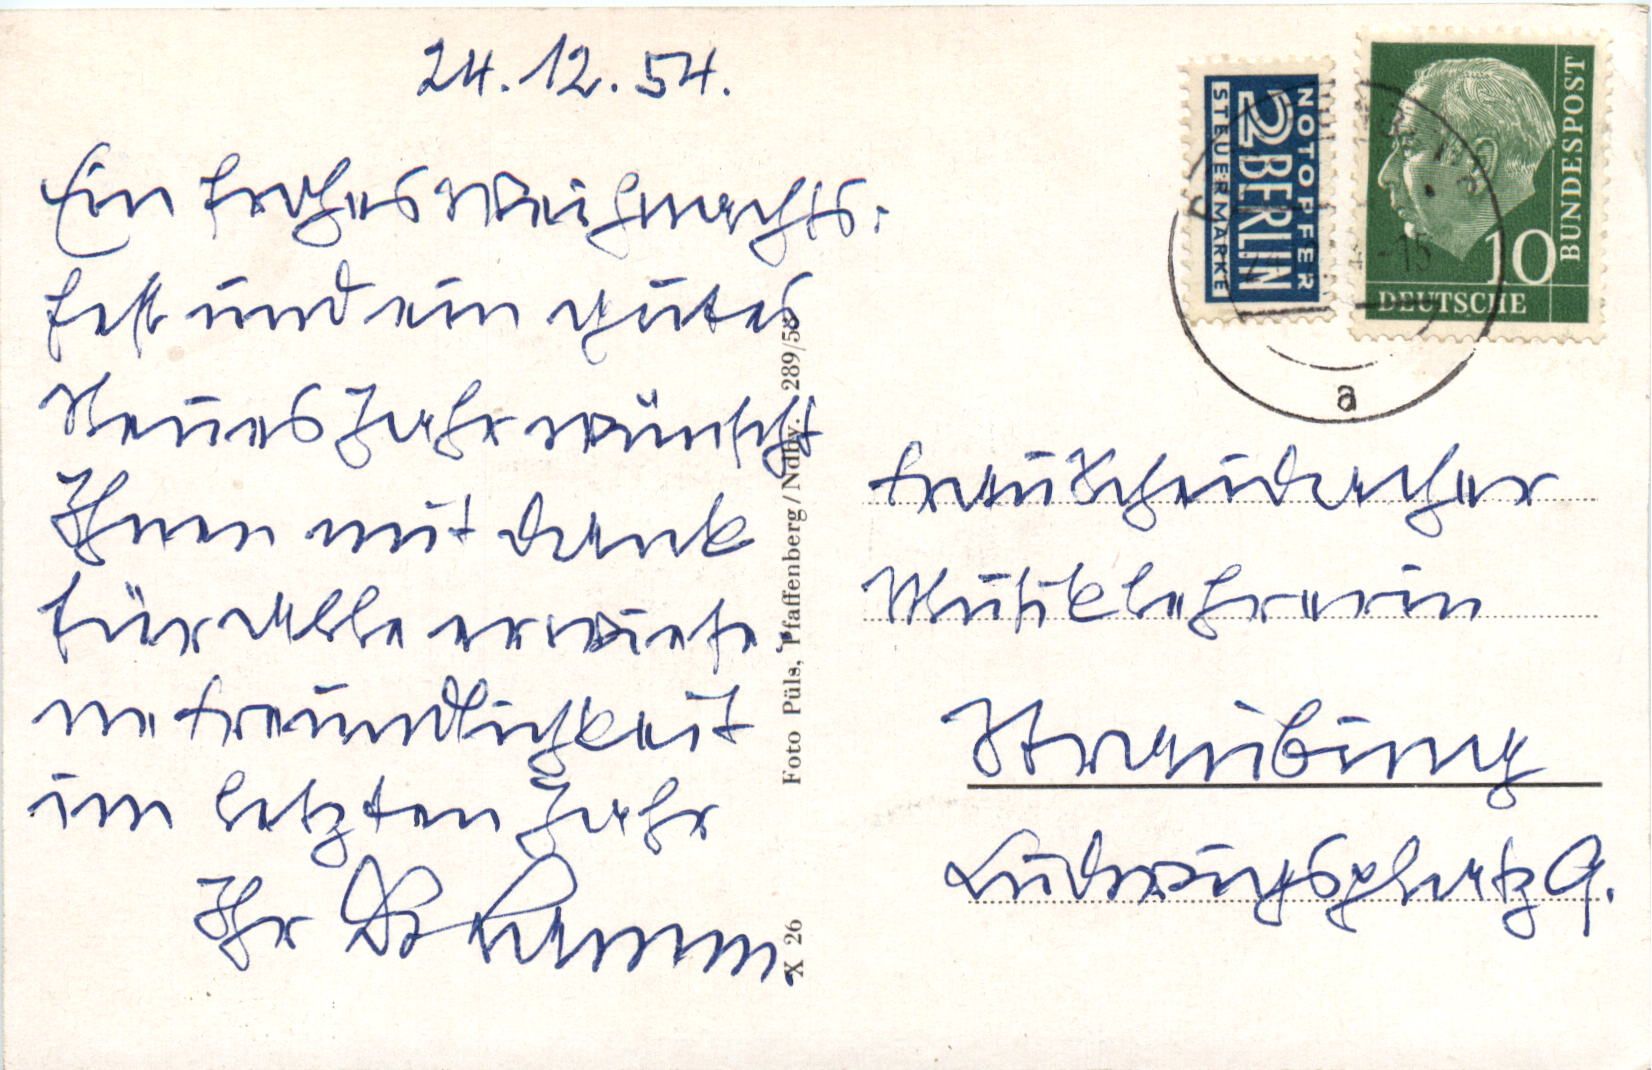 24.12.54.
Ein frohes Weihnachts-
fest und ein gutes
Neues Jahr wünscht
Ihnen mit Dank
für Alle erwiese-
ne Freundlichkeit
im letzten Jahr
Ihr
NOTOPFER
2 BERLIN
STEUERMARKE
DEUTSCHE
BUNDESPOST
10
-15
a
Foto Püls, Pfaffenberg/Ndby. 289/53
X 26
Frau Scheidacher
Musiklehrerin
Straubing
Ludwigsplatz 9.